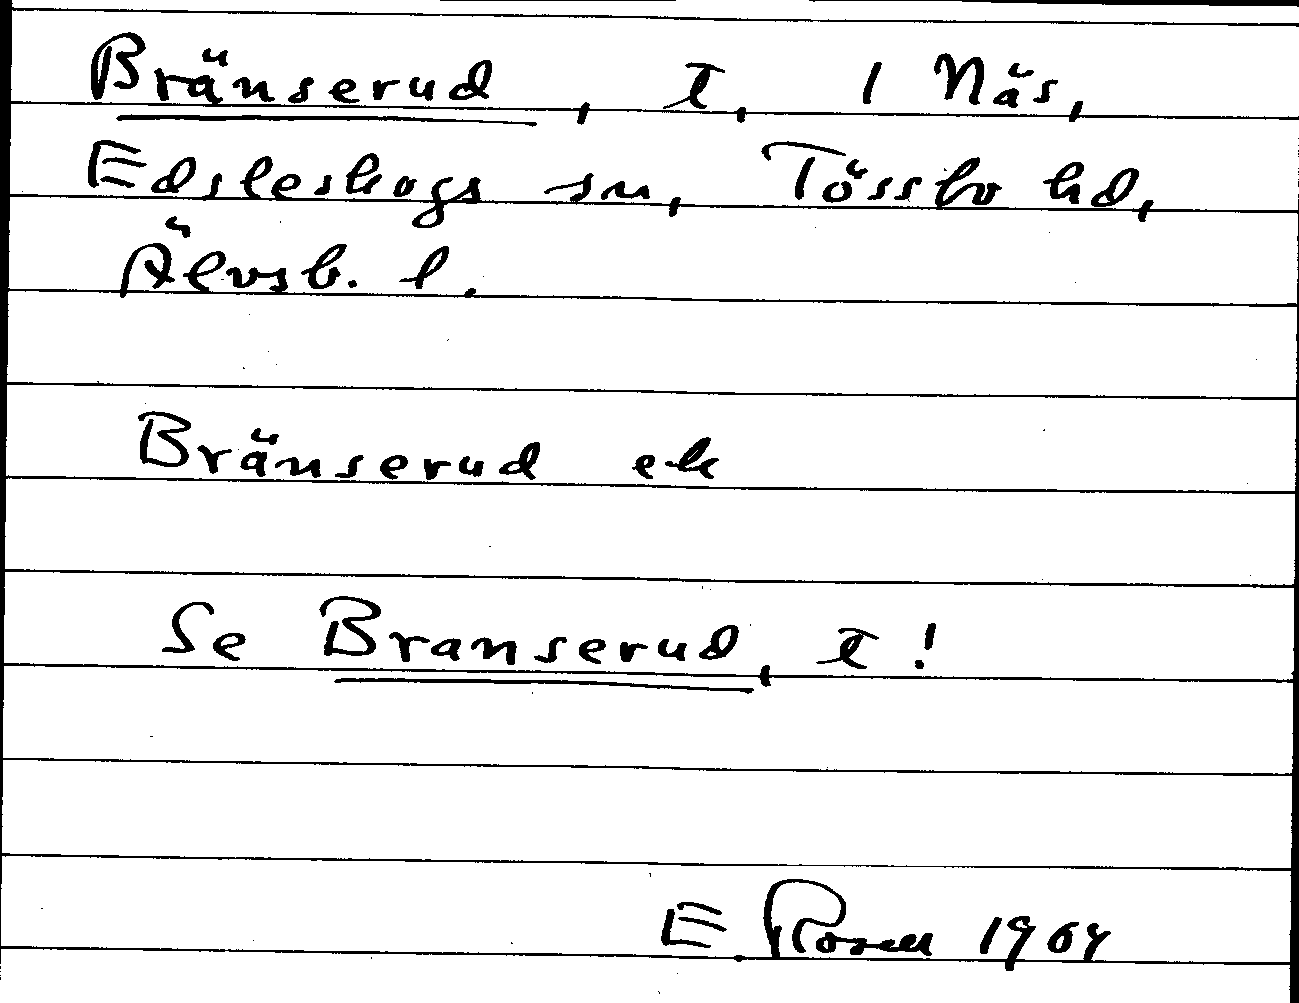 Bränserud, t, 1 Näs,
Edsleskogs sn, Tössbo hd,
Älvsb. l.
Bränserud ek
Se Branserud, t!
E. Rosell 1964